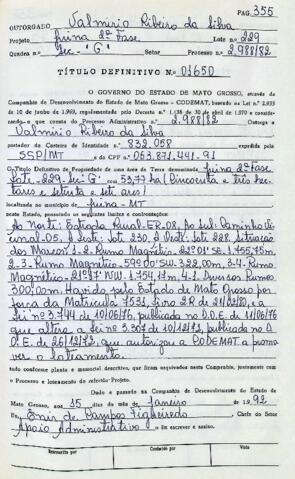 PAG. 355
OUTORGADO Valmirio Ribeiro da Silva
Projeto Juina 2ª Fase Lote 229
Quadra n.º Sec-'G' Setor Processo n.º 2.988/82
TÍTULO DEFINITIVO N.º 01650
O GOVERNO DO ESTADO DE MATO GROSSO, através da
Companhia de Desenvolvimento do Estado de Mato Grosso - CODEMAT, baseado na Lei n.º 2.935
de 10 de junho de 1.969, regulamentado pelo Decreto n.º 1.138 de 30 de abril de 1.970 e conside-
rando o que consta do Processo Administrativo n.º 2.988/82 Outorga a
Valmirio Ribeiro da Silva
portador da Carteira de Identidade n.º 832.058 expedida pelo
SSP/MT e do CPF n.º 063.871.441-91
O Título Definitivo de Propriedade de uma área de Terra denominada Juina 2ª Fase
Lote-229-Sec-G' com 53,77 ha (cincoenta e três hec-
tares e setenta e sete ares)
localizada no município de Juina-MT
neste Estado, possuindo os seguintes limites e confrontações:
Ao Norte: Estrada Rural-ER-08, Ao Sul: Caminho Vi-
cinal-05, à Leste: Lote 230, à Oeste: Lote 228. Situação
dos Marcos: 1-2. Rumo Magnético. 22º01' SE. 1.755,75m
2-3. Rumo Magnético-59º00' SW-322,00m, 3-4-Rumo
Magnético-21º97' NW. 1.754,17m. 4-1. Diversos Rumo
300,00m. Havido, pelo Estado de Mato Grosso por
força da Matricula 7531, fino 2R de 21/02/80, e a
Lei nº 3.744 de 10/06/76, publicado no D.O.E. de 11/06/76
que altera a Lei nº 3.307 de 10/12/72, publicado no D.
O.E. de 26/12/72, que autorizou a CODEMAT a promo-
ver o loteamento.
tudo conforme planta e memorial descritivo, que ficam arquivados nesta Companhia, juntamente com
o Processo e loteamento do referido Projeto.
Dado e passado na Companhia de Desenvolvimento do Estado de
Mato Grosso, aos 15 dias do mês de Janeiro de 1.992
Eu, Enir de Campos Figueiredo Chefe do Setor
Apoio Administrativo o fiz escrever e assino.
Datilografado por Conferido por Visto